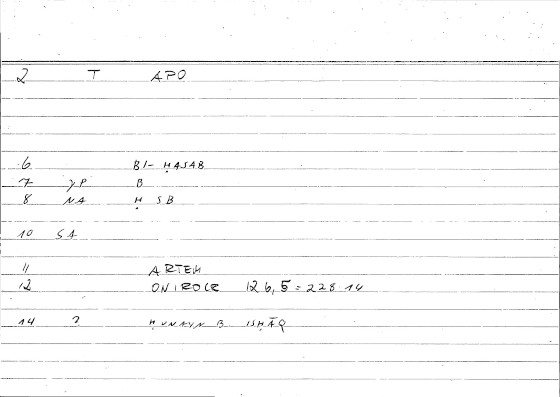 2 T APO
6 BI- ḤASAB
7 γP B
8 NA Ḥ SB
10 SA
11 ARTEM
12 ONIROCR 126,5=228.14
14 ? ḤUNAYN B. ISḤĀQ